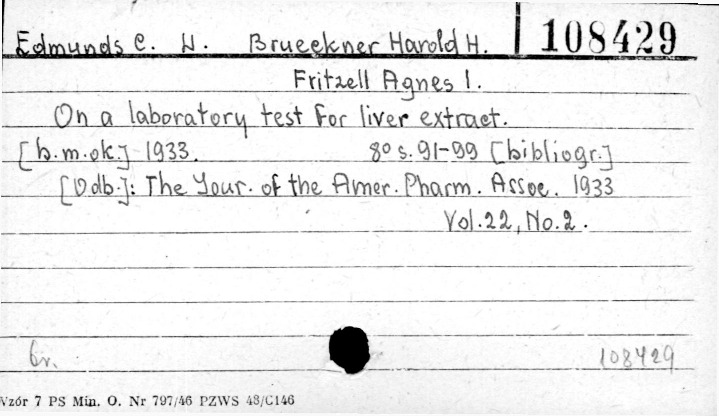 Edmunds C. W. Brueckner Harold H. 108429
Fritzell Agnes I.
On a laboratory test for liver extract.
[b.m.ok.] 1933. 8º s. 91-99 [bibliogr.]
[Odb.]: The Jour. of the Amer. Pharm. Assoc. 1933
Vol. 22, No. 2.
br. 108429
Wzór 7 PS Min. O. Nr 797/46 PZWS 48/C146